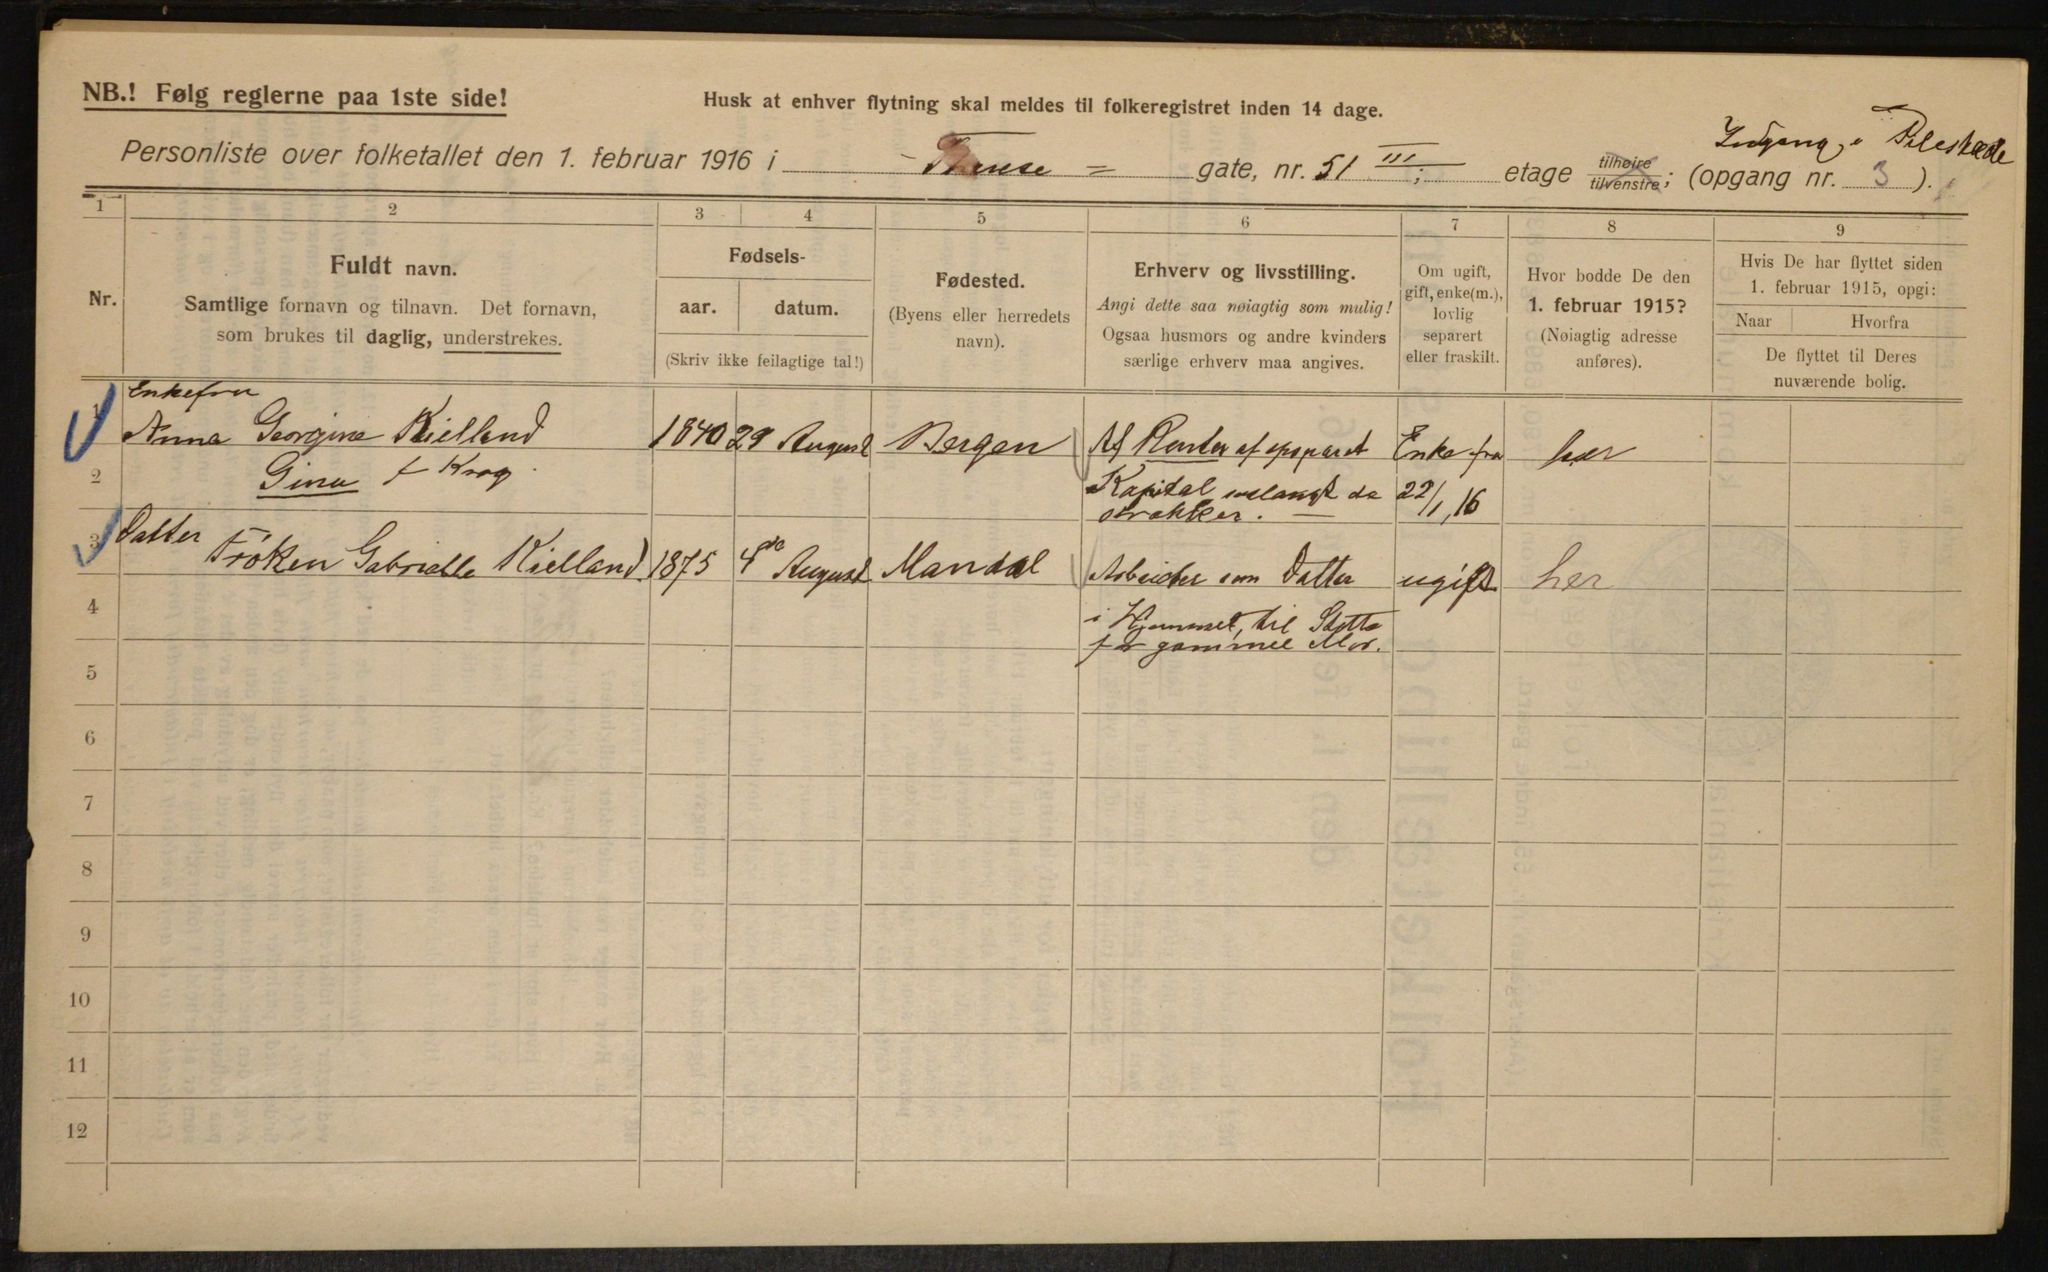 NB.! Følg reglerne paa 1ste side!
Husk at enhver flytning skal meldes til folkeregistret inden 14 dage.
Indgang i Pilestræde
Personliste over folketallet den 1. februar 1916 i Thense gate, nr. 51 III; etage tilhøire tilvenstre; (opgang nr. 3).
1 2 3 4 5 6 7 8 9
Nr.
Fuldt navn.
Samtlige fornavn og tilnavn. Det fornavn,
som brukes til daglig, understrekes.
Fødsels-
aar. datum.
(Skriv ikke feilagtige tal!)
Fødested.
(Byens eller herredets
navn).
Erhverv og livsstilling.
Angi dette saa nøiagtig som mulig!
Ogsaa husmors og andre kvinders
særlige erhverv maa angives.
Om ugift,
gift, enke(m.),
lovlig
separert
eller fraskilt.
Hvor bodde De den
1. februar 1915?
(Nøiagtig adresse
anføres).
Hvis De har flyttet siden
1. februar 1915, opgi:
Naar Hvorfra
De flyttet til Deres
nuværende bolig.
Enkefru
1 Anna Georgine Kielland 1840 29 August Bergen Af Renter af opsparet Enke fra her
2 Gina f Krog Kapital saalangt de 22/1, 16
strækker.
3 Datter Frøken Gabrielle Kielland 1875 4de August Mandal Arbeider som Datter ugift her
4 i Hjemmet, til Støtte
for gammel Mor.
5
6
7
8
9
10
11
12